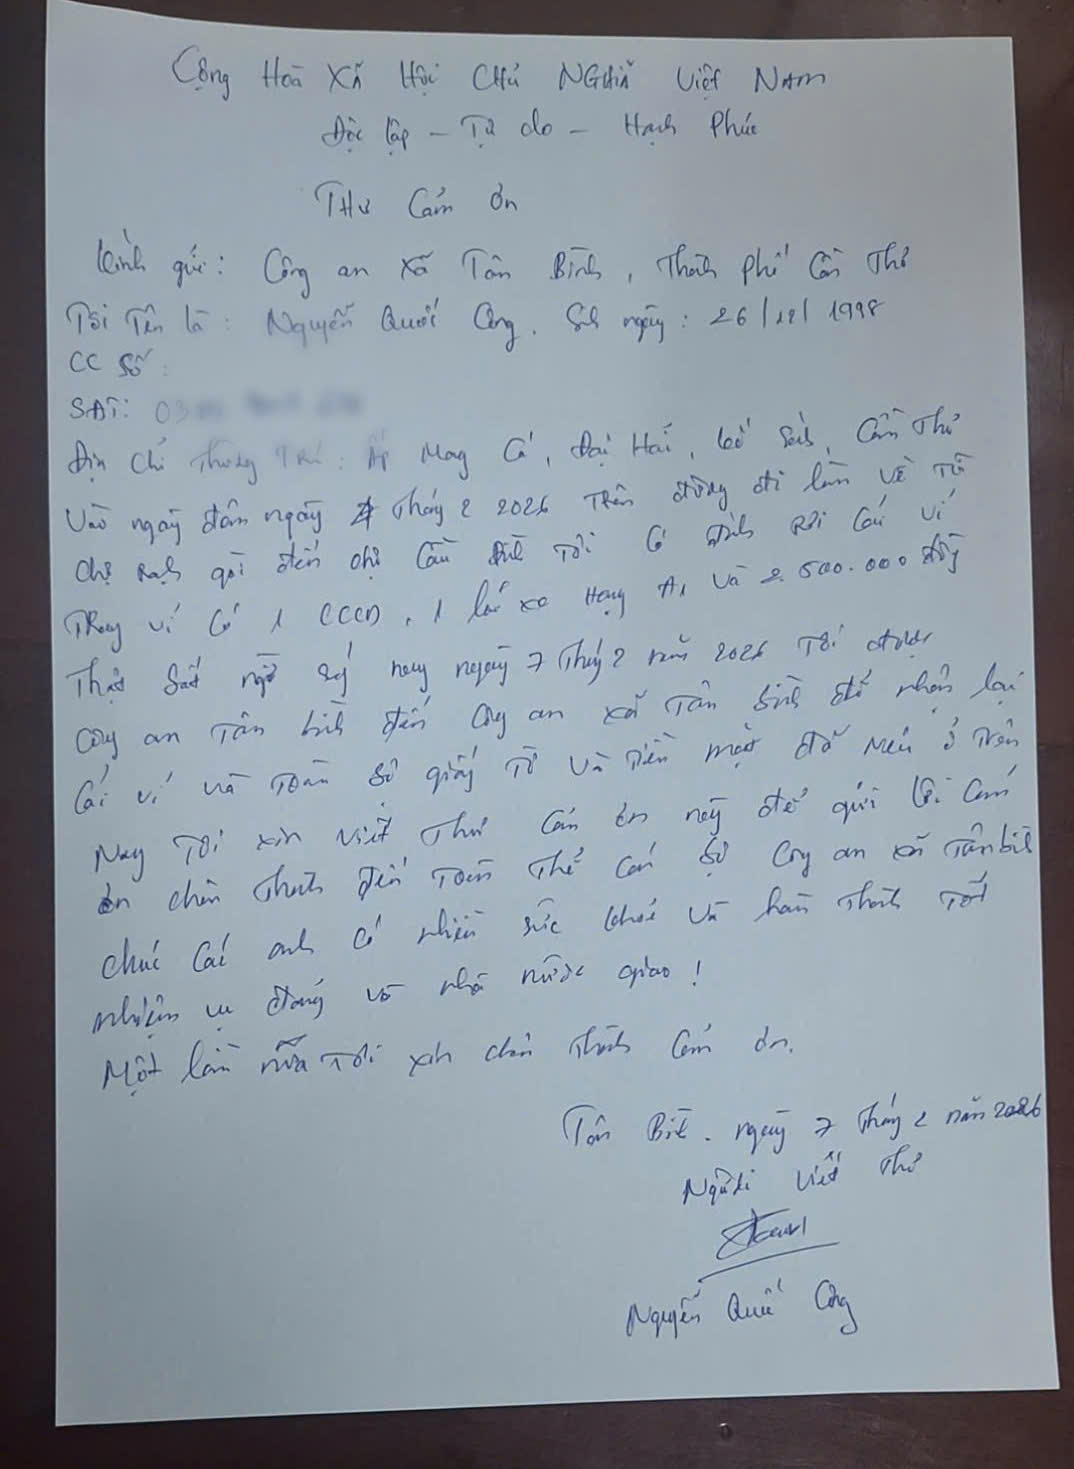 Cộng Hoà Xã Hội Chủ Nghĩa Việt Nam
Độc lập - Tự do - Hạnh Phúc
Thư Cảm ơn
Kính gửi: Công an xã Tân Bình, Thành phố Cần Thơ
Tôi Tên là: Nguyễn Quốc Công. Sinh ngày: 26/12/1998
CC Số:
SĐT: 03
Địa chỉ Thường Trú: Ấp Mang Cá, Đại Hải, Kế Sách, Cần Thơ
Vào ngày đêm ngày 4 Tháng 2 2026 Trên đường đi làm về Từ
chợ Rạch gòi đến chợ Cầu Tôi Có đánh Rơi Cái ví
Trong ví Có 1 CCCD, 1 lái xe Hạng A1 và 2.500.000 đồng
Thật bất ngờ nay ngày 7 Tháng 2 năm 2026 Tôi được
Công an Tân bình đến Công an xã Tân bình để nhận lại
Cái ví và Toàn bộ giấy Tờ và Tiền mặt đã nêu ở Trên
Nay Tôi xin viết Thư Cảm ơn này để gửi lời Cảm
ơn chân Thành đến Toàn Thể Cán bộ Công an xã Tân bình
chúc Các anh Có nhiều sức khoẻ và hoàn Thành Tốt
nhiệm vụ đảng và nhà nước giao!
Một lần nữa Tôi xin chân Thành Cảm ơn.
Tân Bình. ngày 7 Tháng 2 năm 2026
Người viết Thư
Nguyễn Quốc Công